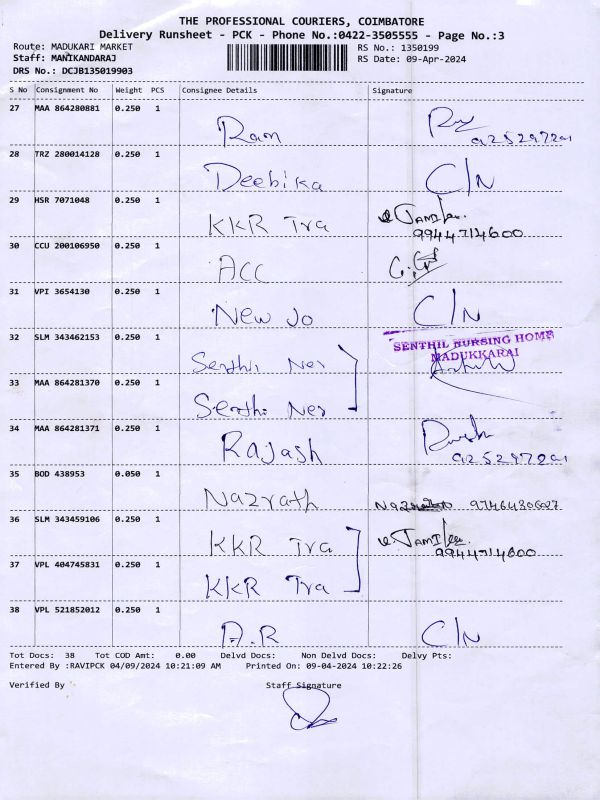 THE PROFESSIONAL COURIERS, COIMBATORE
Delivery Runsheet - PCK - Phone No.:0422-3505555 - Page No.:3
Route: MADUKARI MARKET RS No.: 1350199
Staff: MANIKANDARAJ RS Date: 09-Apr-2024
DRS No.: DCJB135019903
S No Consignment No Weight PCS Consignee Details Signature
27 MAA 864280881 0.250 1 Ram
9252972201
28 TRZ 280014128 0.250 1 Deebika C/N
29 HSR 7071048 0.250 1 KKR Tra
9944714600
30 CCU 200106950 0.250 1 ACC
31 VPI 3654130 0.250 1 New Jo C/N
32 SLM 343462153 0.250 1 Senthil Ner
SENTHIL NURSING HOME
MADUKKARAI
33 MAA 864281370 0.250 1 Senthil Ner
34 MAA 864281371 0.250 1 Rajash
35 BOD 438953 0.050 1 Nazrath
36 SLM 343459106 0.250 1 KKR Tra
9944714600
37 VPL 404745831 0.250 1 KKR Tra
38 VPL 521852012 0.250 1 A.R C/N
Tot Docs: 38 Tot COD Amt: 0.00 Delvd Docs: Non Delvd Docs: Delvy Pts:
Entered By :RAVIPCK 04/09/2024 10:21:09 AM Printed On: 09-04-2024 10:22:26
Verified By Staff Signature